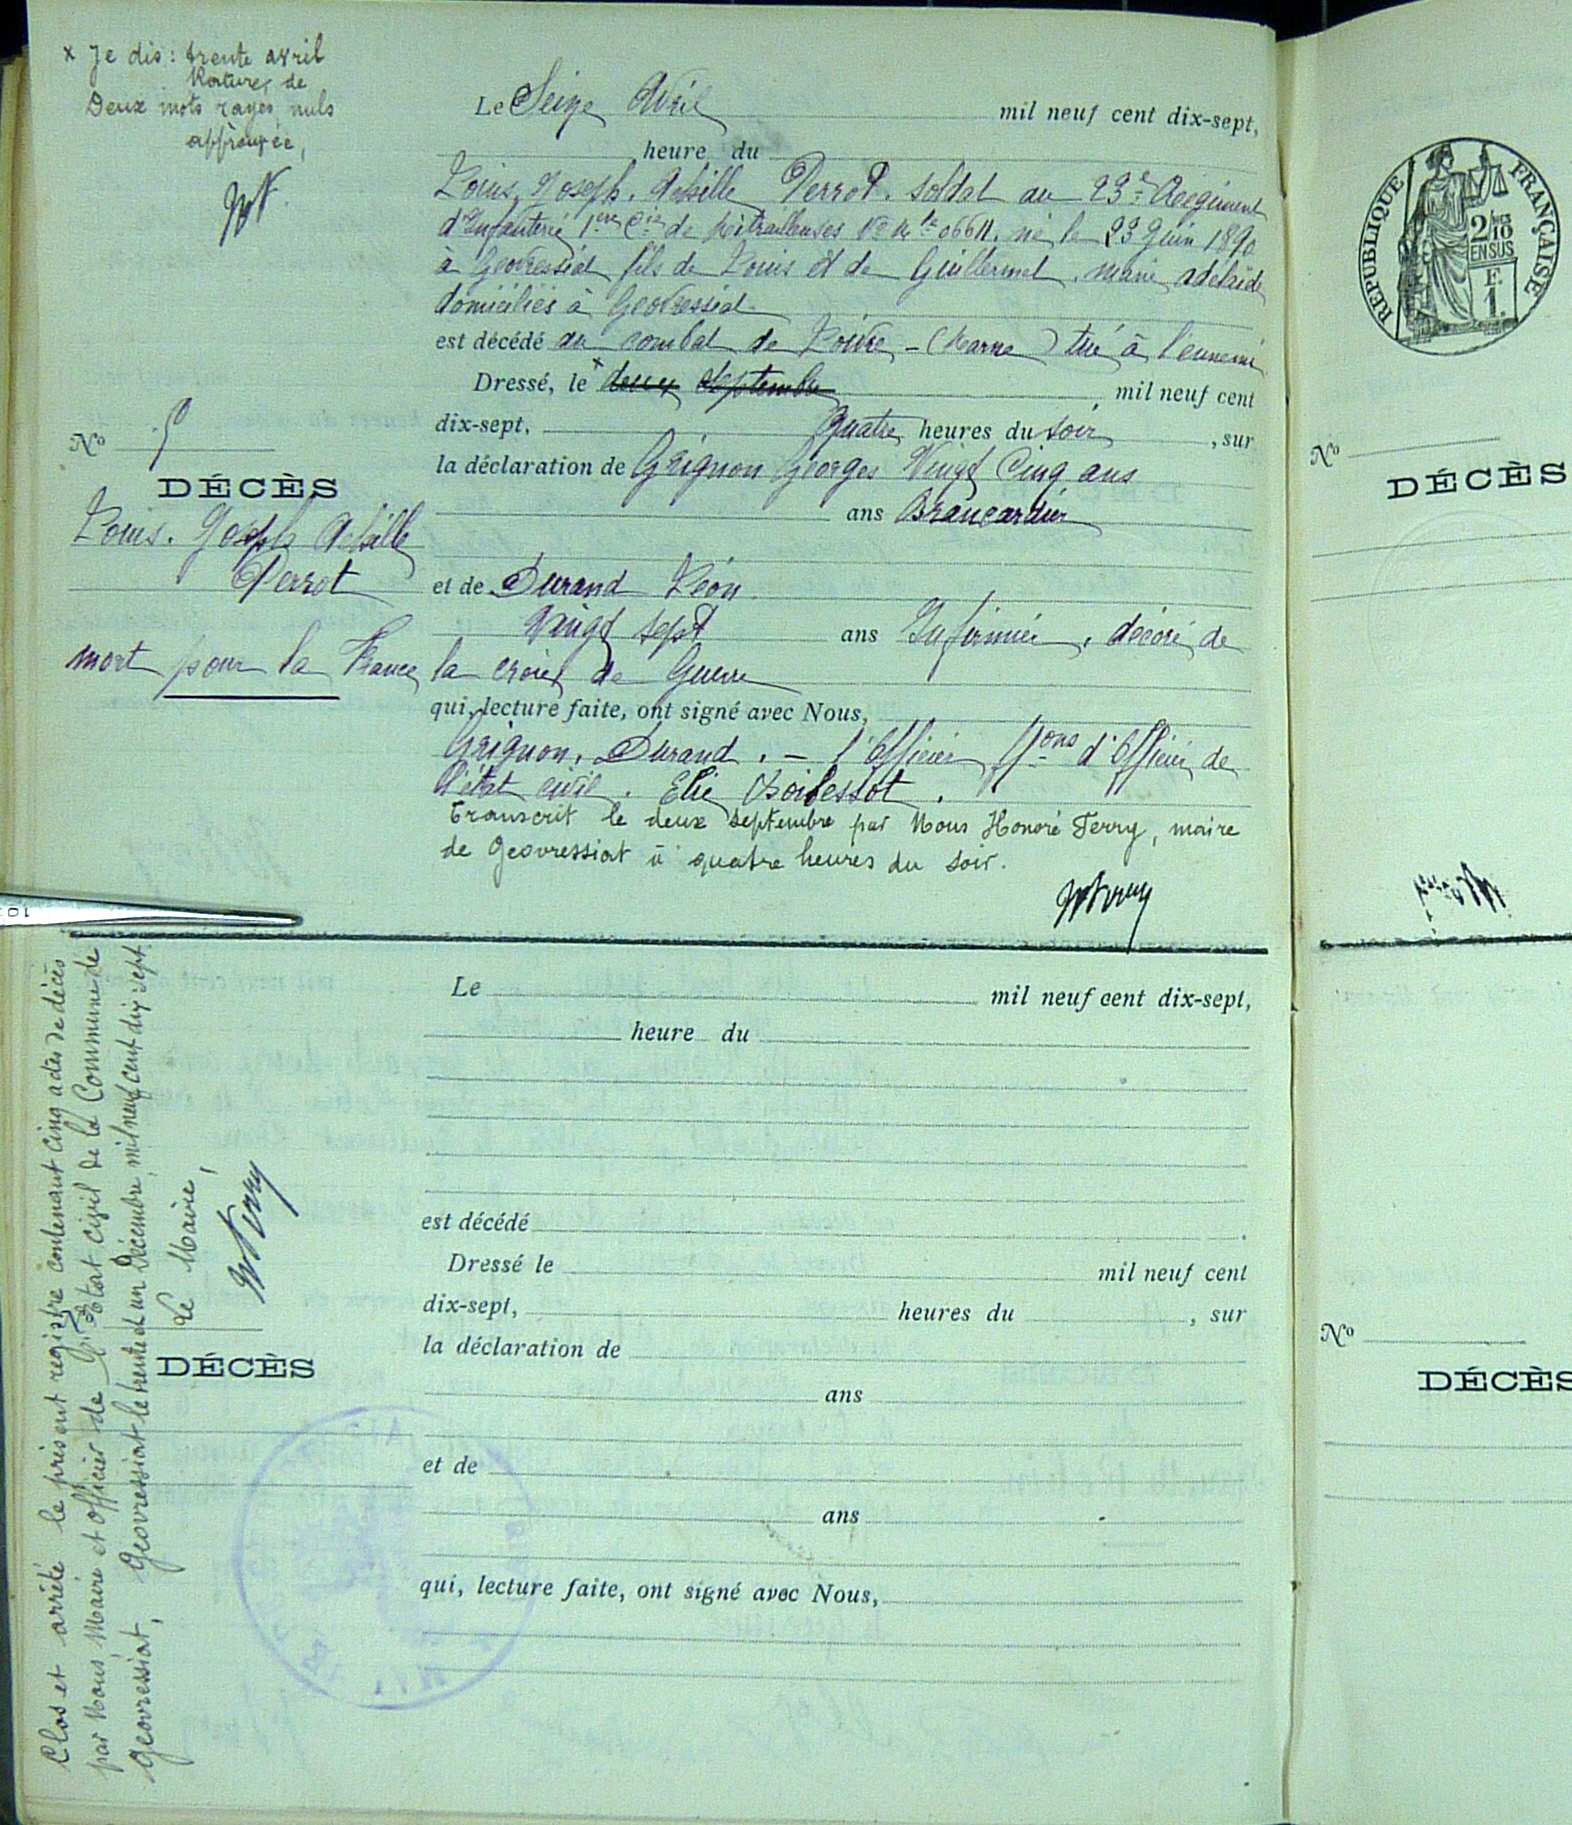 x Je dis : trente avril
Rature, de
Deux mots rayés nuls
approuvée,
Le Seize Avril mil neuf cent dix-sept,
heure du
Louis, Joseph. Achille Perrot. soldat au 23e Régiment
d'Infanterie 1ère Cie de Mitrailleuses No Mle 06611. né le 23 Juin 1890
à Geovressiat fils de Louis et de Guillermet. marie adelaïde
domiciliés à Geovressiat
est décédé au combat de Loivre - (Marne) tué à l'ennemi
Dressé, le x deux septembre, mil neuf cent
dix-sept, Quatre heures du soir, sur
la déclaration de Grignon Georges Vingt Cinq ans
ans Brancardier
et de Durand Léon
Vingt sept ans Infirmier, décoré de
la croix de Guerre
qui, lecture faite, ont signé avec Nous,
Grignon, Durand. - l'Officier ffons d'Officier de
l'état civil. Elie Boilessot.
Transcrit le deux septembre par Nous Honoré Ferry, maire
de Geovressiat à quatre heures du soir.
No 5
DÉCÈS
Louis. Joseph Achille
Perrot
mort pour la France
Le mil neuf cent dix-sept,
heure du
est décédé
Dressé le mil neuf cent
dix-sept, heures du , sur
la déclaration de
ans
et de
ans
qui, lecture faite, ont signé avec Nous,
DÉCÈS
Clos et arrêté le présent registre contenant cinq actes de décès
par Nous, Maire et officier de l'Etat civil de la Commune de
Geovressiat, Geovressiat le trente et un Décembre mil neuf cent dix-sept
Le Maire,
RÉPUBLIQUE FRANÇAISE
2/10
EN SUS
F.
1.
No
DÉCÈS
No
DÉCÈS
10